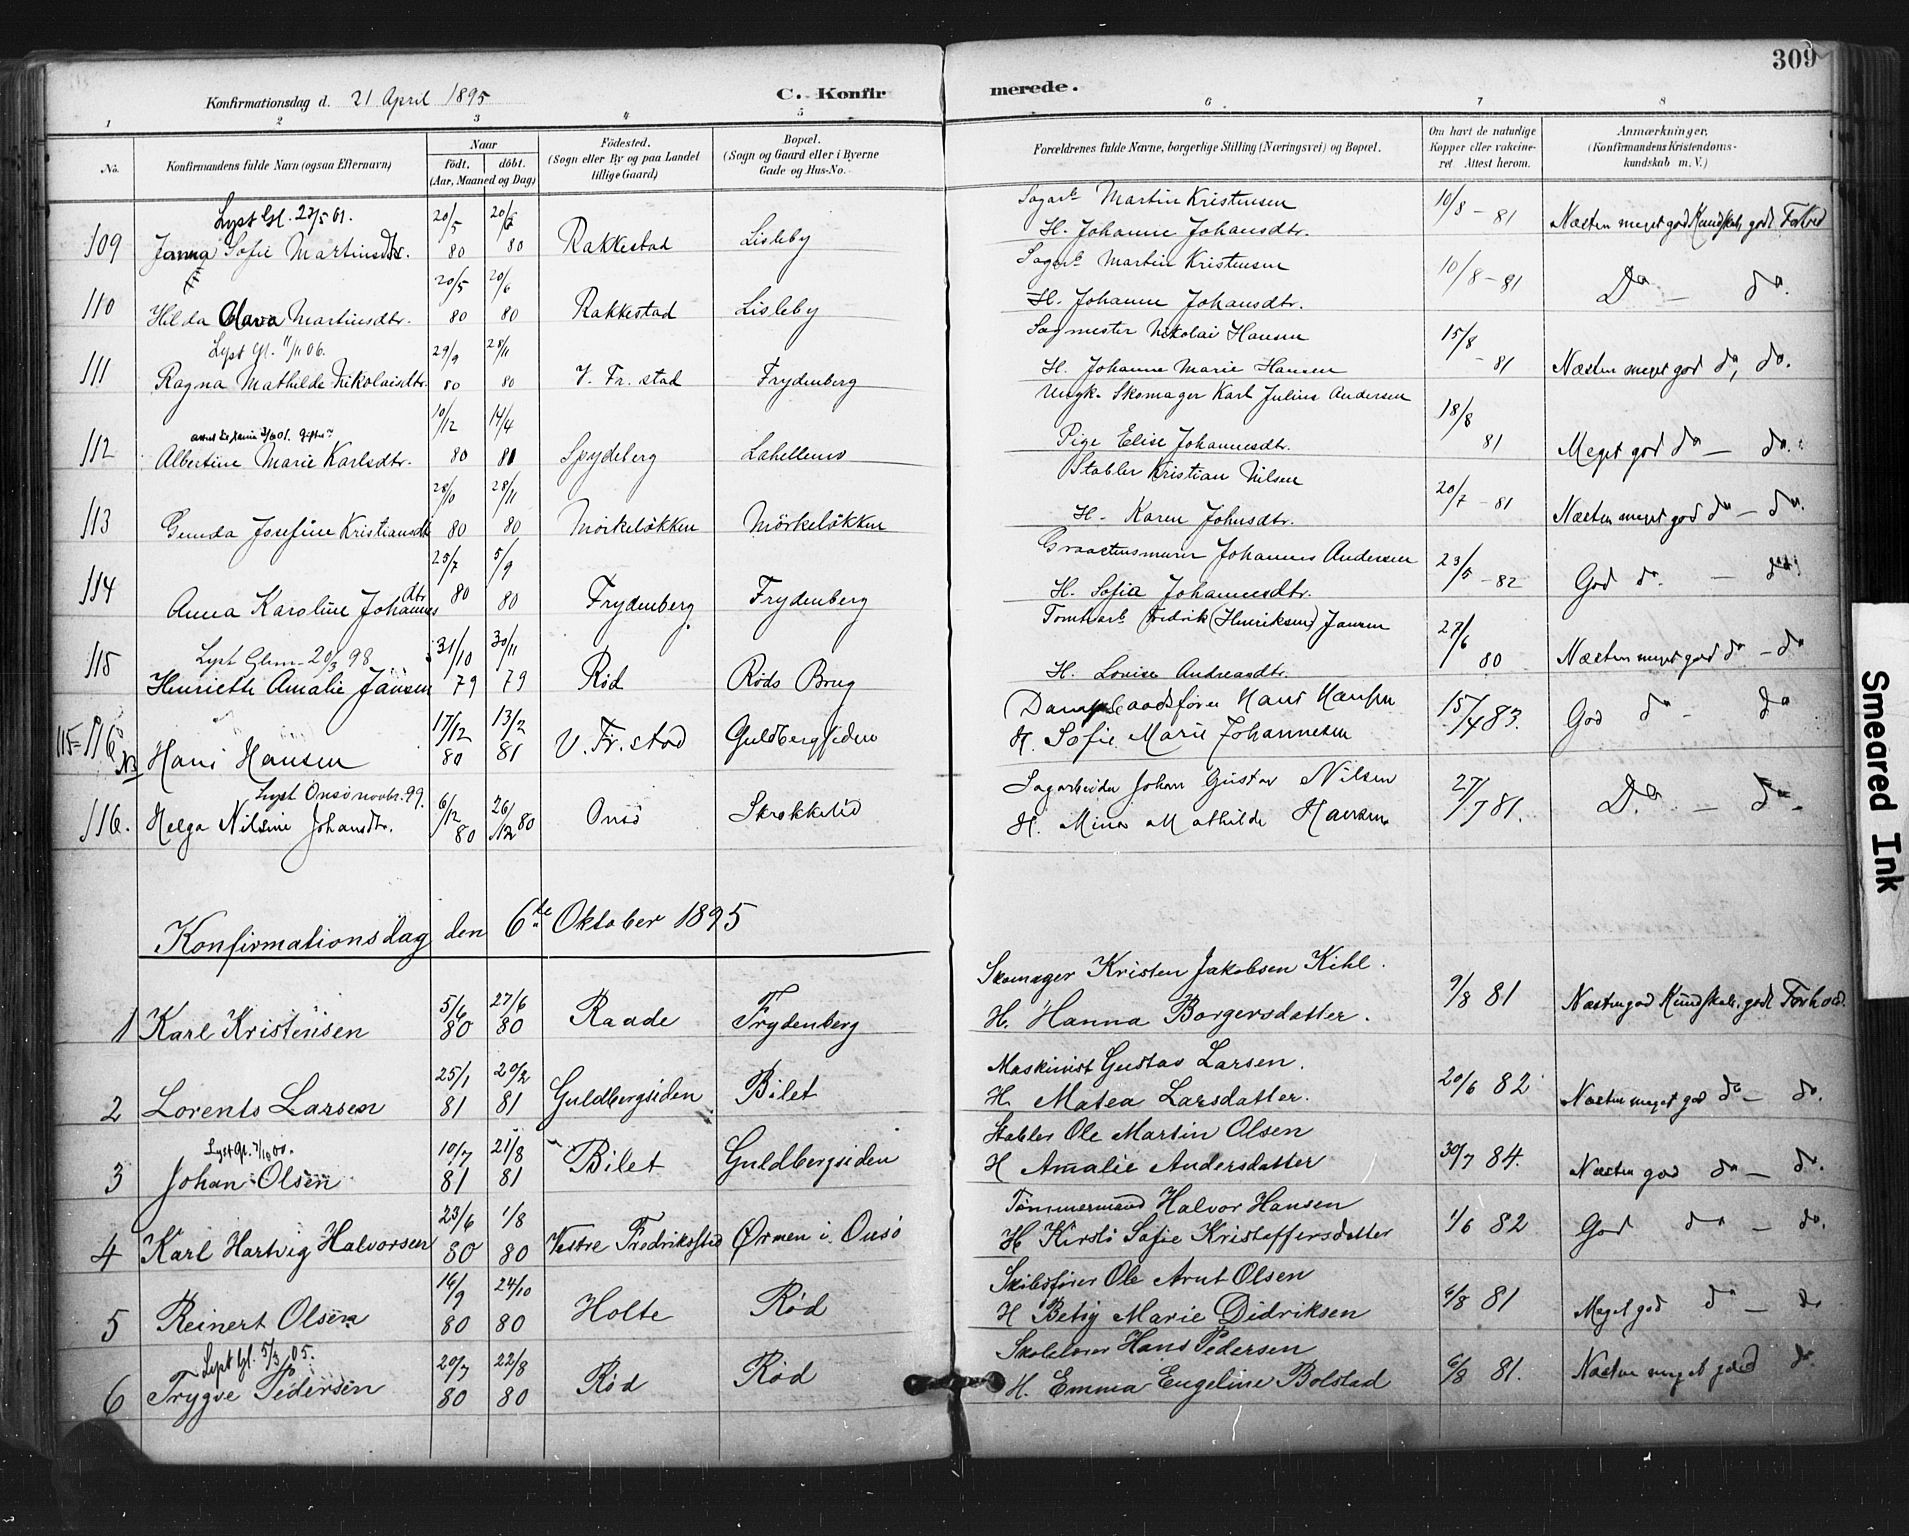 309
Konfirmationsdag d. 21 April 1895 C. Konfirmerede.
1 2 3 4 5 6 7 8
No. Konfirmandens fulde Navn (ogsaa Efternavn) Naar født, døbt. (Aar, Maaned og Dag) Födested. (Sogn eller By og paa Landet tillige Gaard) Bopæl. (Sogn og Gaard eller i Byerne Gade og Hus-No. Forældrenes fulde Navne, borgerlige Stilling (Næringsvei) og Bopæl. Om havt de naturlige Kopper eller vakcineret. Attest herom. Anmærkninger, (Konfirmandens Kristendomskundskab m. V.)
Lyst Gl. 01. 20/5 Sagarb. Martin Kristensen 10/8 - 81
109 Janna Sofie Martinsdtr. 80 80 Rakkestad Lisleby H. Johanne Johansdtr. Næsten meget god Kundskab, godt Forhold
20/5 20/6 Sagarb. Martin Kristensen 10/8 - 81
110 Hilda Martinsdtr. 80 80 Rakkestad Lisleby H. Johanne Johansdtr. Do - do.
Lyst Gl. 11/11 06. 29/9 28/11 Sagmester Nikolai Hansen 15/8
111 Ragna Mathilde Nikolaisdtr. 80 80 V. Fr. stad Frydenberg H. Johanne Marie Hansen - 81 Næsten meget god do, do.
10/12 14/4 Ungk. Skomager Karl Julius Andersen 18/8
112 Albertine Marie Karlsdtr. 80 81 Spydeberg Lahellemo Pige Elise Johannesdtr. 81 Meget god do - do.
28/10 28/11 Stabler Kristian Nilsen 20/7 - 81
113 Gunda Josefine Kristiansdtr 80 80 Mörkelökken Mörkelökken H. Karen Johnsdtr. Næsten meget god do - do.
25/7 5/9 Graastensmurer Johannes Andersen 23/5 - 82
114 Anna Karoline Johannesdtr. 80 80 Frydenberg Frydenberg H. Sofia Johannesdtr. God do. - do.
Lyst Glem. 20/3 98 31/10 30/11 Tomtearb. Fredrik (Henriksen) Jansen 27/6
115 Henriette Amalie Jansen 79 79 Rød Røds Brug H. Lovise Andreasdtr. 80 Næsten meget god do - do
17/12 13/2 Hans Hansen 15/4 83.
115 116 Hans Hansen 80 81 V. Fr. stad Guldbergsiden H. Sofie Marie Johannesen God do - do
Lyst Onsö novbr. 99. 6/12 26/12 Sagarbeider Johan Gustav Nilsen 27/7 81.
116. Helga Nilsine Johansdtr. 80 80 Onsö Skrokkelid H. Mina Mathilde Hansen Do. - do -
Konfirmationsdag den 6te Oktober 1895
5/6 27/6 Skomager Kristen Jakobsen Kihl. 9/8 81
1 Karl Kristensen 80 80 Raade Frydenberg H. Hanna Borgersdatter. Næsten god Kundskab, godt Forhold.
25/1 20/2 Maskinist Gustav Larsen. 20/6 82
2 Lorents Larsen 81 81 Guldbergsiden Bilet H. Matea Larsdatter. Næsten meget god do - do.
Lyst Gl. 00. 10/7 21/8 Stabler Ole Martin Olsen 30/7 84.
3 Johan Olsen 81 81 Bilet Guldbergsiden H Amalie Andersdatter Næsten god do - do.
23/6 1/8 Tömmermand Halvor Hansen 1/6 82
4 Karl Hartvig Halvorsen 80 80 Vestre Fredriksstad Ørmen i Onsö H Kirsti Sofie Kristoffersdatter God do - do.
16/9 24/10 Skibsfører Ole Arnt Olsen 6/8 81
5 Reinert Olsen 80 80 Holte Rød H Betzy Marie Didriksen Meget god do - do
Lyst Gl. 5/3 05. 20/7 22/8 Skolelærer Hans Pedersen 6/8 81.
6 Trygve Pedersen 80 80 Rød Rød H. Emma Engeline Bolstad Næsten meget god do
Smeared Ink